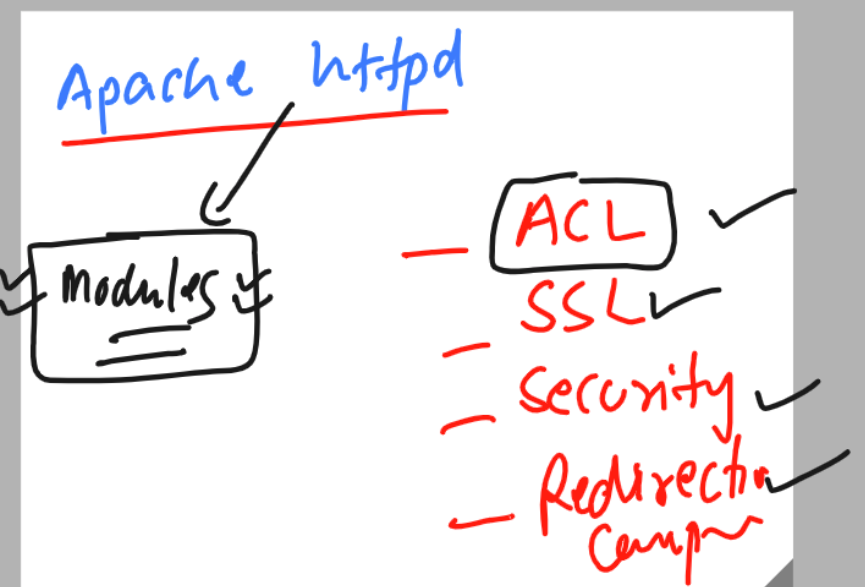 Apache httpd
Modules
- ACL
- SSL
- Security
- Redirection